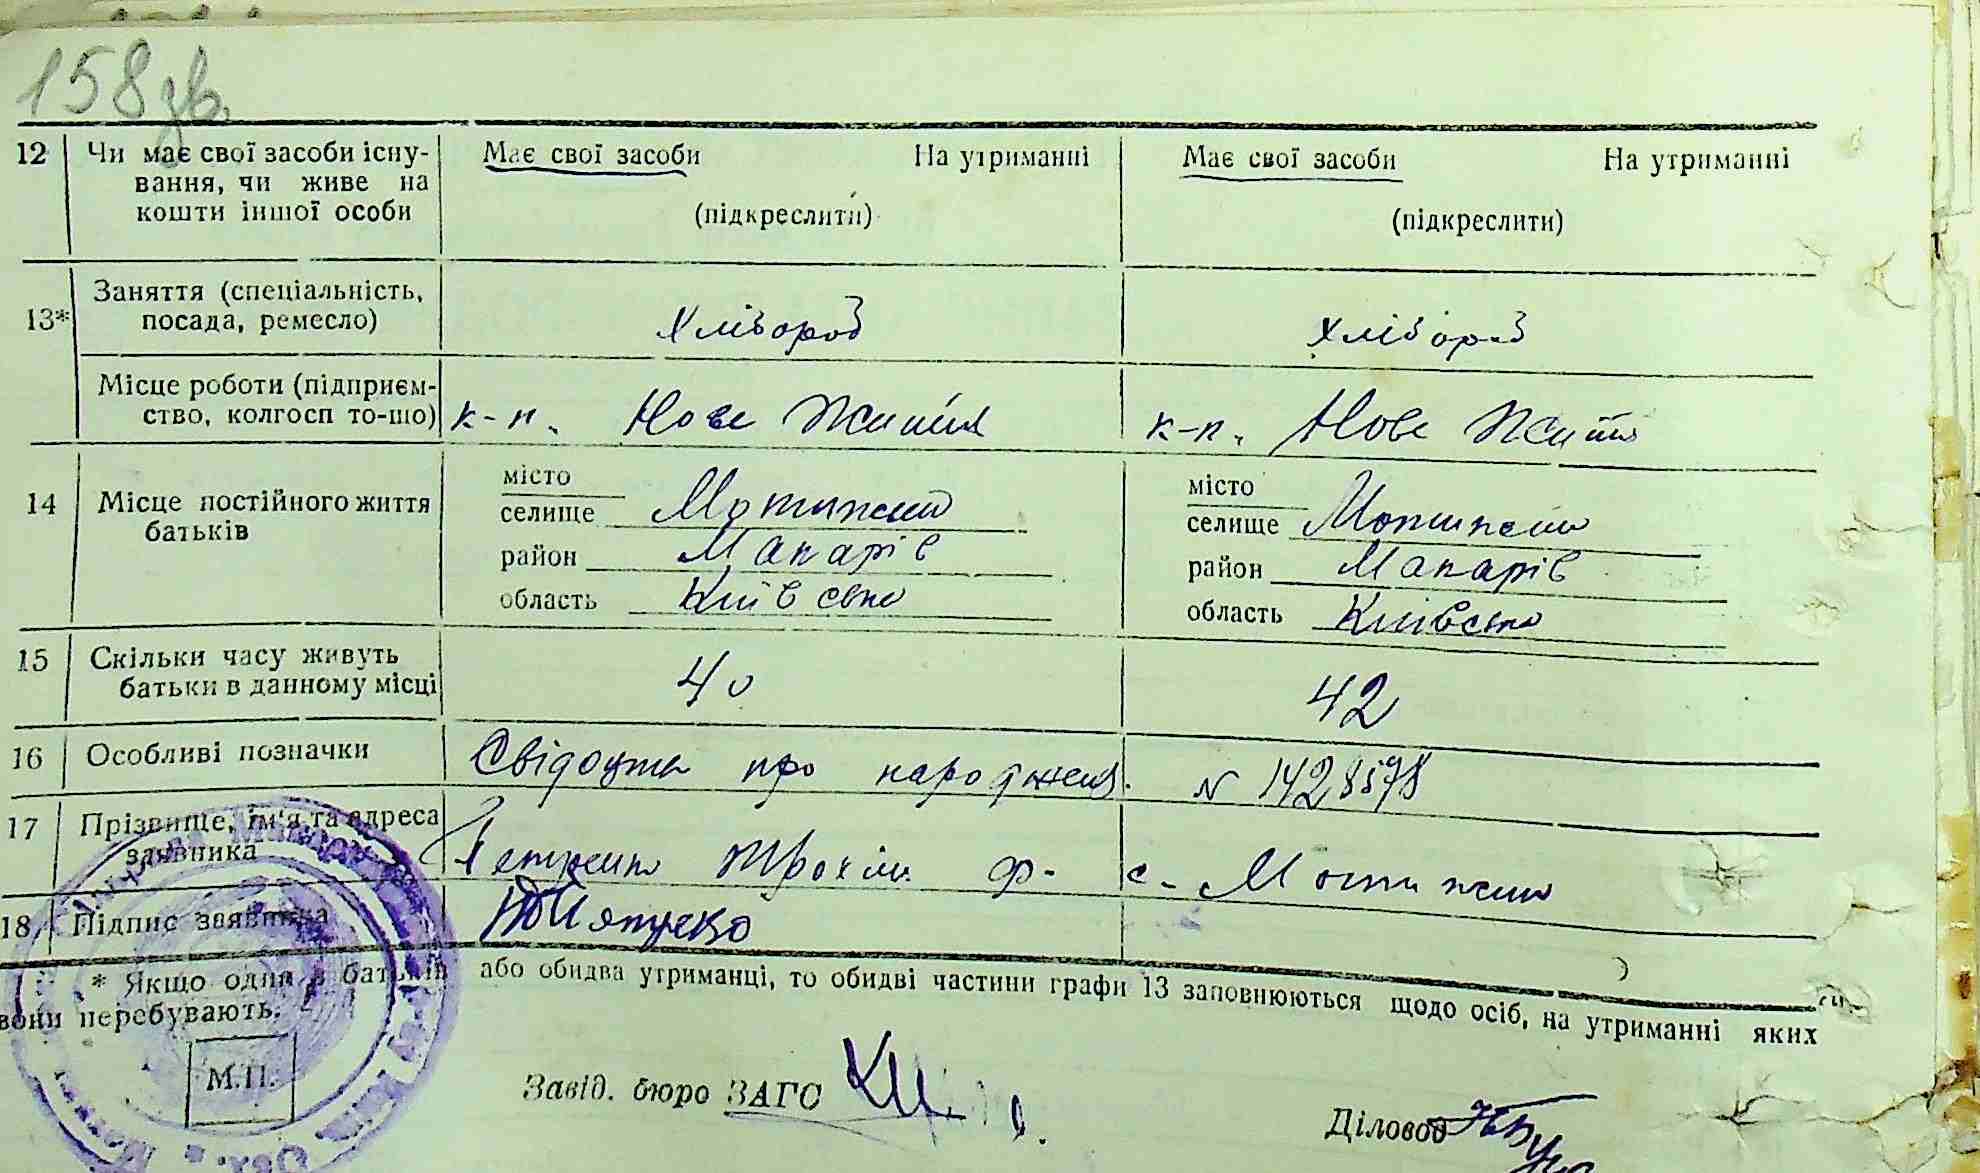 158 зв.
12 Чи має свої засоби існу- Має свої засоби На утриманні Має свої засоби На утриманні
вання, чи живе на
кошти іншої особи (підкреслити) (підкреслити)
Заняття (спеціальність,
13* посада, ремесло) Хлібороб Хлібороб
Місце роботи (підприєм-
ство, колгосп то-що) к-п. Нове Життя к-п. Нове Життя
місто місто
14 Місце постійного життя селище Мотижин селище Мотижин
батьків район Макарів район Макарів
область Київська область Київська
15 Скільки часу живуть
батьки в данному місці 40 42
16 Особливі позначки Свідоцтво про народження. N 1428578
17 Прізвище, ім'я та адреса
заявника Петренко Трохим Ф. с. Мотижин
18 Підпис заявника
* Якщо один з батьків або обидва утриманці, то обидві частини графи 13 заповнюються щодо осіб, на утриманні яких
вони перебувають.
М.П.
Завід. бюро ЗАГС
Діловод